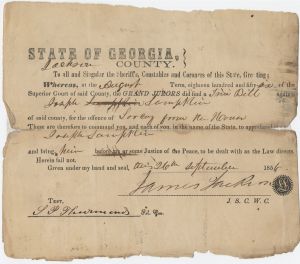 STATE OF GEORGIA,
Jackson COUNTY.
To all and Singular the Sheriffs, Constables and Coroners of this State, Greeting:
Whereas, at the August Term, eighteen hundred and fifty-six of the
Superior Court of said County, the GRAND JURORS did find a True Bill against
Joseph Lumpkin
of said county, for the offence of from the House
These are therefore to command you, and each of you, in the name of the State, to apprehend
Joseph Lumpkin
and bring him before me or some Justice of the Peace, to be dealt with as the Law directs.
Herein fail not.
Given under my hand and seal, this 26th September 1856
James Jackson
J. S. C. W. C.
TEST,
S P Thurmond Sol. Gen.